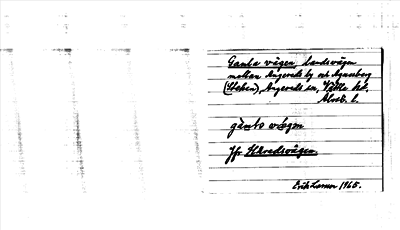 Gamla vägen, landsvägen
mellan Angereds by och Agnesberg
(Steken), Angereds sn, Vättle hd.
Älvsb. l.
gàmlo vägen
Jfr Häradsvägen.
Erik Larsson 1965.